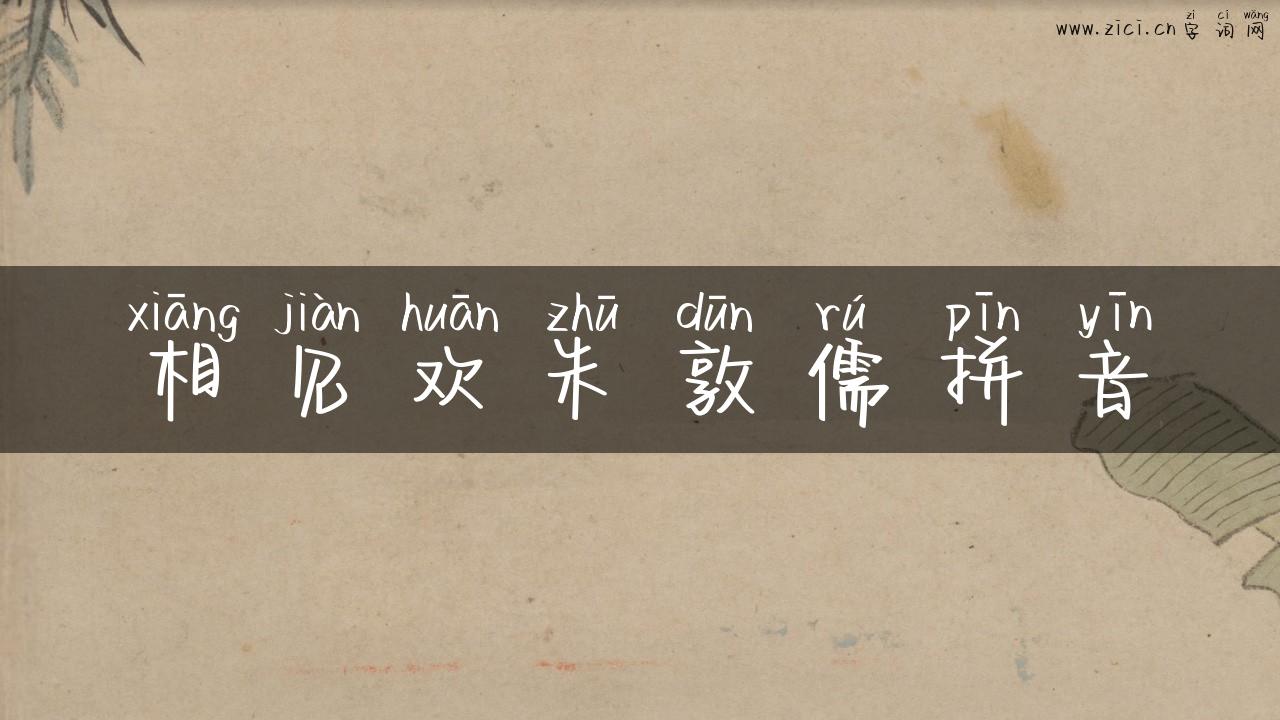 zì cí wǎng
www.zici.cn 字词网
xiāng jiàn huān zhū dūn rú pīn yīn
相见欢朱敦儒拼音